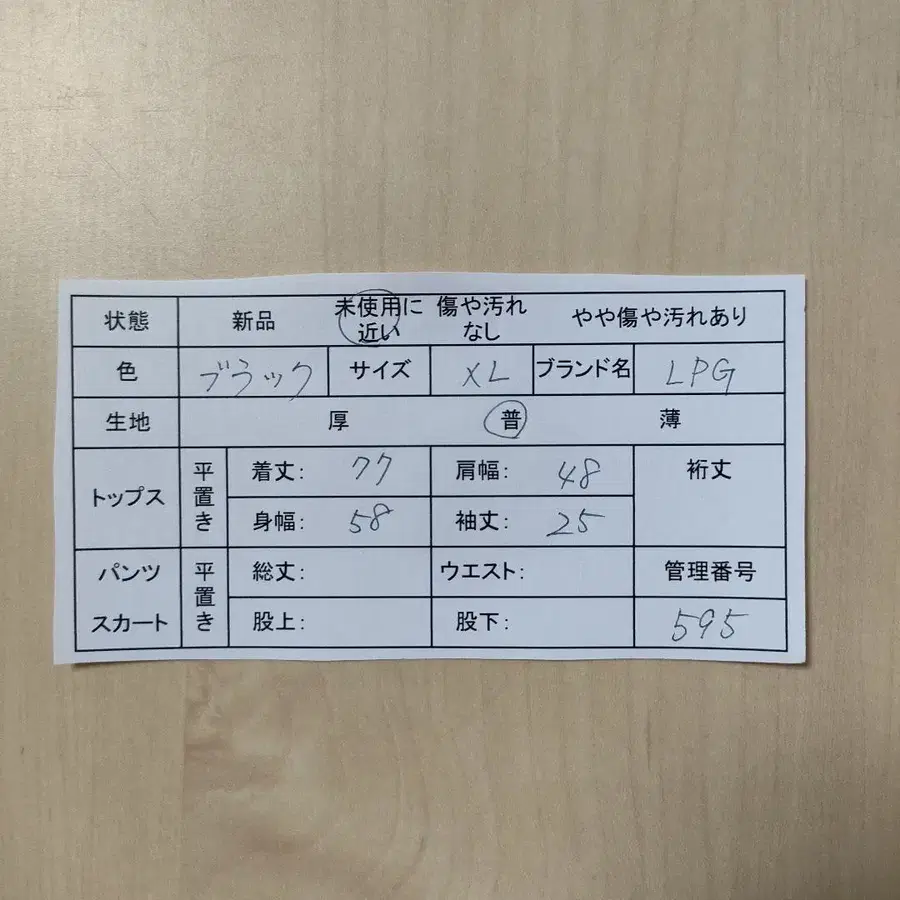 状態 新品 未使用に近い 傷や汚れなし やや傷や汚れあり
色 ブラック サイズ XL ブランド名 LPG
生地 厚 普 薄
トップス 平置き 着丈: 77 肩幅: 48 裄丈
身幅: 58 袖丈: 25
パンツ 平置き 総丈: ウエスト: 管理番号
スカート 股上: 股下: 595